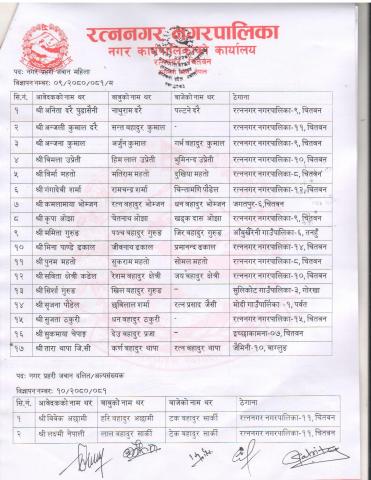 रत्ननगर नगरपालिका
नगर कार्यपालिकाको कार्यालय
पदः नगर प्रहरी जवान महिला
विज्ञापन नम्बरः ०९/२०८०/०८१/म
सि.नं. आवेदकको नाम थर बाबुको नाम थर बाजेको नाम थर ठेगाना
१ श्री अनिता दरै पुर्ढासैनी नाथुराम दरै पल्टने दरै रत्ननगर नगरपालिका-९, चितवन
२ श्री अन्जली कुमाल दरै सन्त बहादुर कुमाल - रत्ननगर नगरपालिका-११, चितवन
३ श्री अन्जना कुमाल अर्जुन कुमाल गर्भ बहादुर कुमाल रत्ननगर नगरपालिका-९, चितवन
४ श्री बिमला उप्रेती हिम लाल उप्रेती भुमिनन्द उप्रेती रत्ननगर नगरपालिका-१०, चितवन
५ श्री विर्मा महतो मतिराम महतो दुखिया महतो रत्ननगर नगरपालिका-८, चितवन
६ श्री गंगादेवी शर्मा रामचन्द्र शर्मा चिन्तामणि पौडेल रत्ननगर नगरपालिका-१२, चितवन
७ श्री कमलामाया भोम्जन रत्न बहादुर भोम्जन धन बहादुर भोम्जन जगतपुर-६,चितवन
८ श्री कृपा ओझा चेतनाथ ओझा खड्क दास ओझा रत्ननगर नगरपालिका-९, चितवन
९ श्री ममिता गुरुङ पञ्च बहादुर गुरुङ जिर बहादुर गुरुङ आँबुखैरेनी गाउँपालिका-६, तनहुँ
१० श्री मिना पाण्डे ढकाल जीवनाथ ढकाल प्रमानन्द ढकाल रत्ननगर नगरपालिका-१४, चितवन
११ श्री पुनम महतो सुकराम महतो सोमल महतो रत्ननगर नगरपालिका-८, चितवन
१२ श्री सविता क्षेत्री कडेल रेशम बहादुर क्षेत्री जय बहादुर क्षेत्री रत्ननगर नगरपालिका-१०, चितवन
१३ श्री शिर्शा गुरुङ खिल बहादुर गुरुङ - सुलिकोट गाउँपालिका-३, गोरखा
१४ श्री सृजना पौडेल छबिलाल शर्मा रत्न प्रसाद जैसी मोदी गाउँपालिका -१, पर्वत
१५ श्री सुजता ठकुरी धन बहादुर ठकुरी - रत्ननगर नगरपालिका-१५, चितवन
१६ श्री सुकमाया चेपाङ देउ बहादुर प्रजा - इच्छाकामना-०७, चितवन
१७ श्री तारा थापा जि.सी कर्ण बहादुर थापा रत्न बहादुर थापा जैमिनी-१०, बाग्लुङ
पदः नगर प्रहरी जवान दलित/अल्पसंख्यक
विज्ञापन नम्बरः १०/२०८०/०८१
सि.नं. आवेदकको नाम थर बाबुको नाम थर बाजेको नाम थर ठेगाना
१ श्री विवेक अछामी हरि बहादुर अछामी टेक बहादुर सार्की रत्ननगर नगरपालिका-११, चितवन
२ श्री लक्ष्मी नेपाली लाल बहादुर सार्की टेक बहादुर सार्की रत्ननगर नगरपालिका-११, चितवन